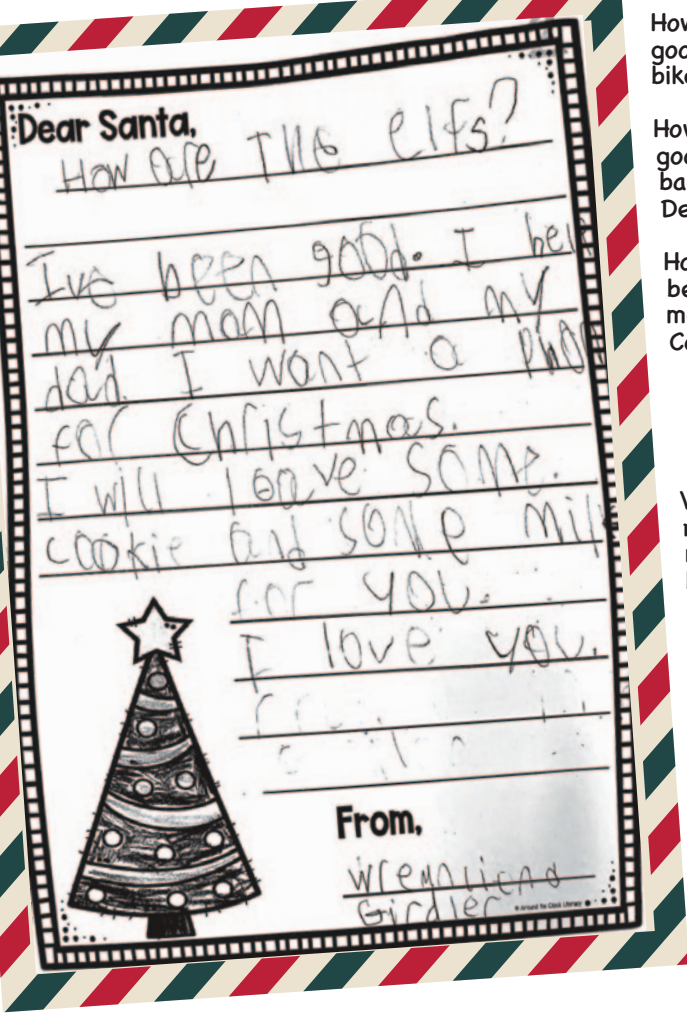 Dear Santa,
How are The elfs?
Ive been good. I hel
my mom and my
dad. I want a phon
for Christmas.
I will leave some.
cookie and some milk
for you.
I love you.
From,
Girdler
© Around the Clock Literacy
How
goo
bike
How
goo
ba
De
Ha
be
m
Co